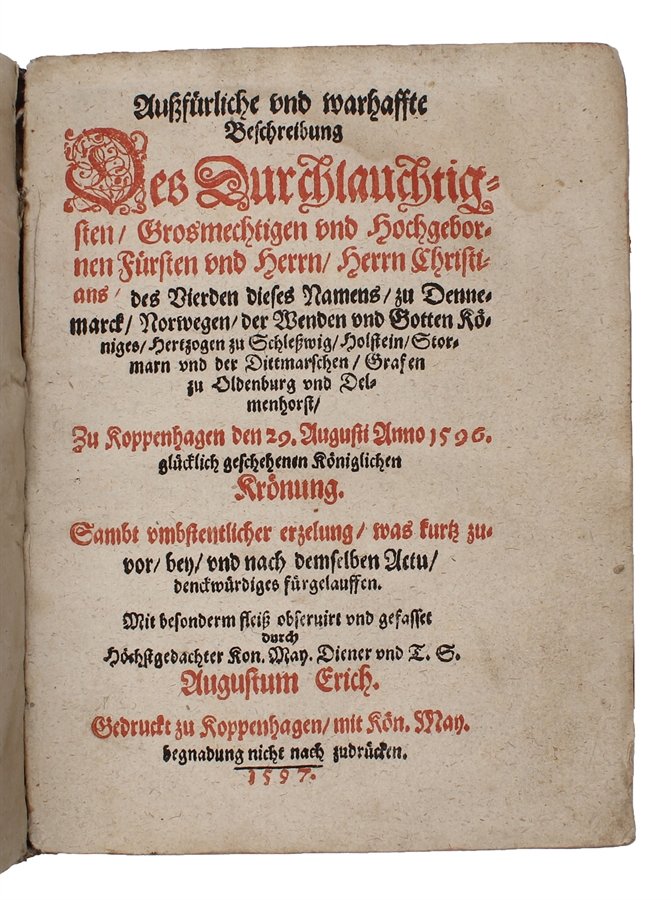 Außfürliche vnd warhaffte
Beschreibung
Des Durchlauchtig-
sten/ Grosmechtigen vnd Hochgebor-
nen Fürsten vnd Herrn/ Herrn Christi-
ans/ des Vierden dieses Namens/ zu Denne-
marck/ Norwegen/ der Wenden vnd Gotten Kö-
niges/ Hertzogen zu Schleßwig/ Holstein/ Stor-
marn vnd der Dittmarschen/ Grafen
zu Oldenburg vnd Del-
menhorst/
Zu Koppenhagen den 29. Augusti Anno 1596.
glücklich geschehenen Königlichen
Krönung.
Sambt vmbstentlicher erzelung/ was kurtz zu-
vor/ bey/ vnd nach demselben Actu/
denckwürdiges fürgelauffen.
Mit besonderm fleiß obseruirt vnd gefasset
durch
Höchstgedachter Kon. May. Diener vnd T. S.
Augustum Erich.
Gedruckt zu Koppenhagen/ mit Kön. May.
begnadung nicht nach zudrücken.
1597.